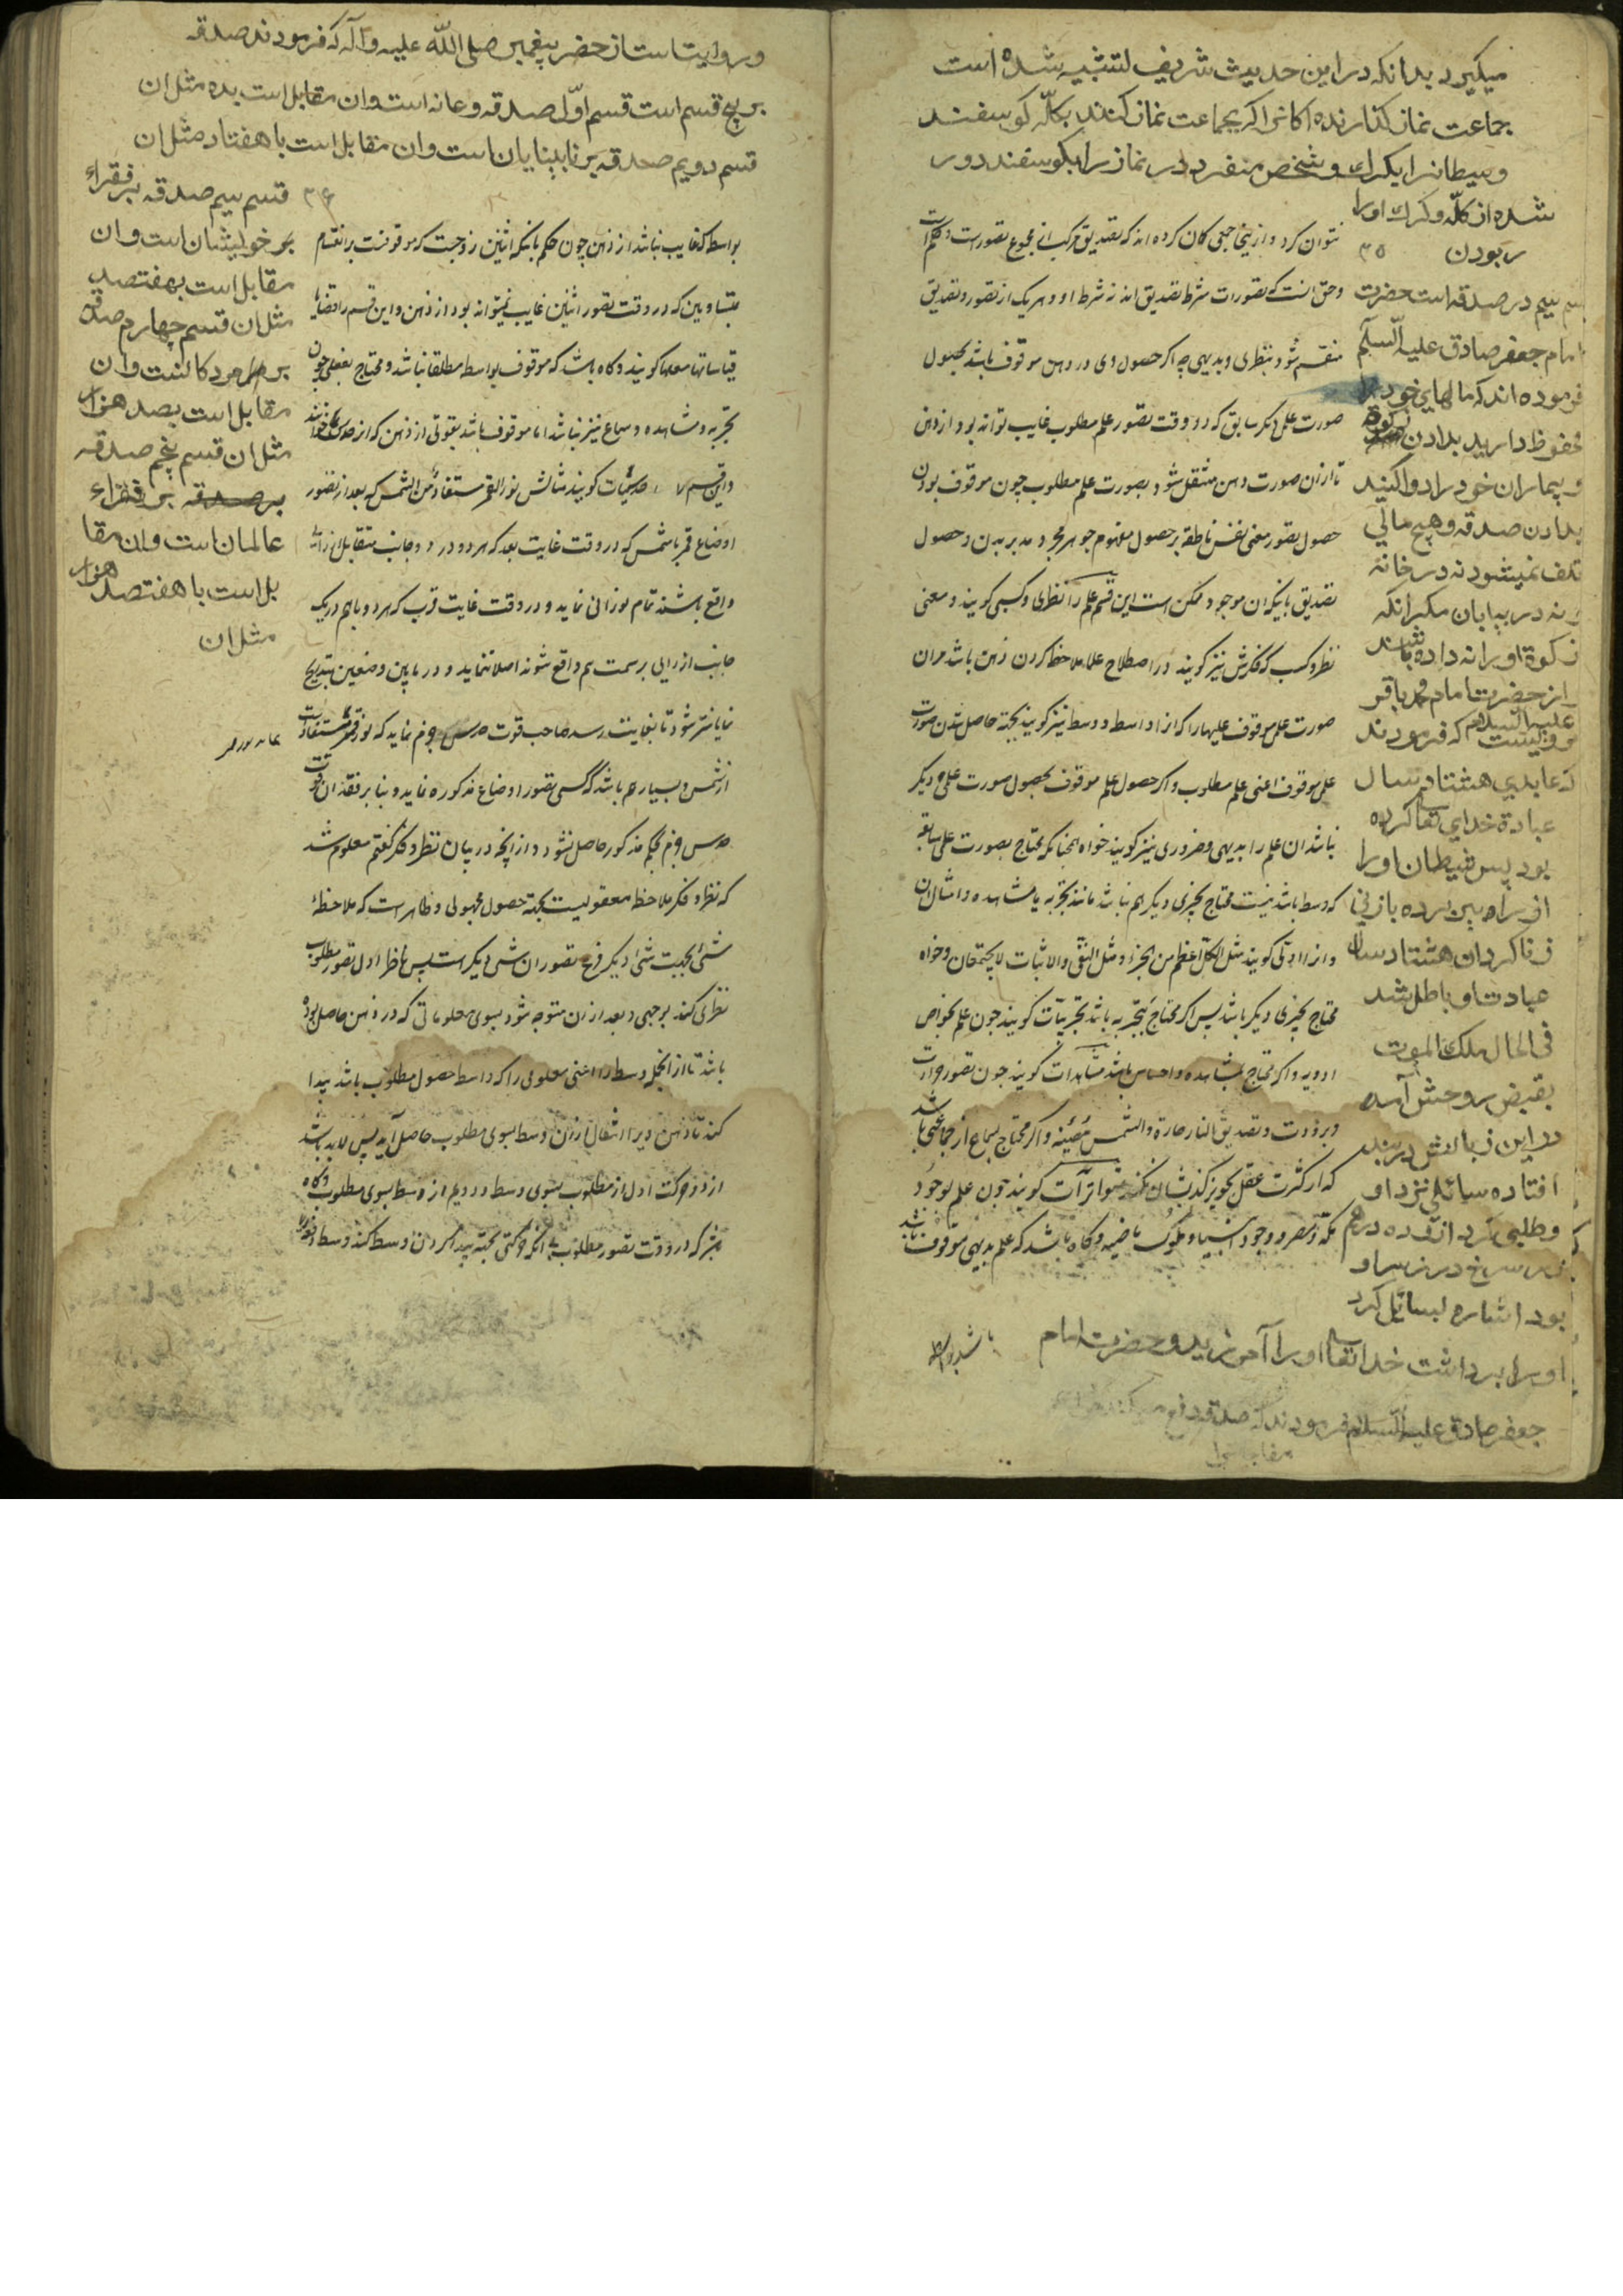 میکیرد بدانکه در این حدیث شریف تشبیه شده است
جماعت نماز کذارنده اکانرا اکر بجماعت نماز کنند بکلّه کوسفند
و شیطانرا بکرك و شخص منفرد در نماز را بکوسفند دور
شده از کلّه و کرك اورا
ربودن ۳۵
سیم در صدقه است حضرت
امام جعفر صادق علیه السّلام
فرموده اند که مالهای خود را
محفوظ دارید بدادن زکوة
و بیماران خود را دوا کنید
بدادن صدقه و هیچ مالی
تلف نمیشود نه در خانه
و نه در بیابان مکر آنکه
زکوة او را نه داده باشند
از حضرت امام محمد باقر
علیه السلام مرویست که فرمودند
که عابدی هشتاد سال
عبادة خدای تعالی کرده
بود پس شیطان اورا
از راه بین برده بازنی
زنا کرد ان هشتاد سال
عبادت او باطل شد
فی الحال ملك الموت
بقبض روحش آمده
در این زبانش در بند
افتاده سائلی نزد او
و طلبی کرد از
سرخ در زیر او
بود اشاره بسائل کرد
او را برداشت خدا تعالی اورا آمرزید و حضرت امام
جعفر صادق علیه السّلام فرمودند که صدقه دفع میکند
نتوان کرد و از ینجا جمعی کمان کرده اند که تصدیق مرکب از مجموع تصورات و حکم است
و حق انست که تصورات شرط تصدیق اند نه شرط او و هر یک از تصور و تصدیق
منقسم شود بنظری و بدیهی چه اکر حصول وی در ذهن موقوف باشد بحصول
صورت علمی دیکر سابق که در وقت تصور علم مطلوب غایب تواند بود از ذهن
تا از ان صورت ذهن منتقل شود بصورت علم مطلوب چون موقوف بودن
حصول تصور معنی نفس ناطقه بر حصول مفهوم جوهر مجرد مدبر بدن و حصول
تصدیق باینکه ان موجود ممکن است این قسم علم را نظری و کسبی کویند و معنی
نظر و کسب که فکرش نیز کویند در اصطلاح علما ملاحظه کردن ذهن باشد مران
صورت علم موقوف علیها را که انرا واسطه و وسط نیز کویند بجهة حاصل شدن صورت
علم موقوف اعنی علم مطلوب و اکر حصول علم موقوف بحصول صورت علمی دیکر
نباشد ان علم را بدیهی و ضروری نیز کویند خواه همچنانکه محتاج بصورت علمی سابقه
که وسط باشد نیست محتاج بچیزی دیکر هم نباشد مانند تجربه یا مشاهده و امثال ان
و انرا اولی کویند مثل الکل اعظم من الجزء و مثل النفی و الاثبات لا یجتمعان و خواه
محتاج بچیزی دیکر باشد پس اکر محتاج بتجربه باشد تجربیات کویند چون علم بخواص
ادویه و اکر محتاج بمشاهده و احساس باشد مشاهدات کویند چون تصور حرارت
و برودت و تصدیق النار حارة و الشمس مضیئة و اکر محتاج بسماع از جماعتی باشد
که از کثرت عقل تجویز کذبشان نکند متواترات کویند چون علم بوجود
مکه و مصر و وجود انبیا و ملوک ماضیه و کاه باشد که علم بدیهی موقوف باشد
باشد بواسطه
و روایت است از حضرت پیغمبر صلی اللّه علیه و آله که فرمودند صدقه
بر پنج قسم است قسم اوّل صدقه وعانه است وان مقابل است بده مثل ان
قسم دویم صدقه بر نابینایان است وان مقابل است با هفتاد مثل ان
۳۶ قسم سیم صدقه بر فقراء
بر خویشان است وان
مقابل است بهفتصد
مثل ان قسم چهارم صدقه
بر مردکانست وان
مقابل است بصد هزار
مثل ان قسم پنجم صدقه
بر صدقه بر فقراء
عالمان است وان مقا
بل است با هفتصد هزار
مثل ان
بواسطه که غایب نباشد از ذهن چون حکم بانکه اثنین زوجست که موقوفست بر انقسام
بمتساویین که در وقت تصور اثنین غایب نمیتواند بود از ذهن و این قسم را قضایا
قیاساتها معها کویند و کاه باشد که موقوف بواسطه مطلقا نباشد و محتاج بفعلی چون
تجربه و مشاهده و سماع نیز نباشد اما موقوف باشد بقوتی از ذهن که انرا حدس خوانند
و این قسم را حدسیات کویند مثالش نور القمر مستفاد من الشمس که بعد از تصور
اوضاع قمر با شمس که در وقت غایت بعد که هر دو در دو جانب متقابل از
واقع باشند تمام نورانی نماید و در وقت غایت قرب که هر دو باهم در یک
جانب از رایی بر سمت هم واقع شوند اصلا ننماید و در ما بین وضعین بتدریج
نمایانتر شود تا بغایت رسد صاحب قوت حدس جزم نماید که نور قمر مستفاد است
از شمس و بسیار هم باشد که کسی تصور اوضاع مذکوره نماید و بنا بر فقدان قوت
حدس جزم بحکم مذکور حاصل نشود و از انچه در بیان نظر و فکر کفتم معلوم شد
که نظر و فکر ملاحظه معقولیست بجهة حصول مجهولی و ظاهر است که ملاحظهٔ
شئ بجهت شئ دیکر فرع تصور ان شئ دیکر است پس ناظر اول تصور مطلوب
نظری کند بوجهی و بعد از ان متوجه شود بسوی معلوماتی که در ذهن حاصل بوده
باشد تا از انجمله وسط را اعنی معلومی را که واسطه حصول مطلوب باشد پیدا
کند تا ذهن ویرا انتقال از ان وسط بسوی مطلوب حاصل آید پس لابد باشد
از دو حرکت اول از مطلوب بسوی وسط و دویم از وسط بسوی مطلوب و کاه
نیز که در وقت تصور مطلوب بی انکه حرکتی بجهة پیدا کردن وسط کند وسط